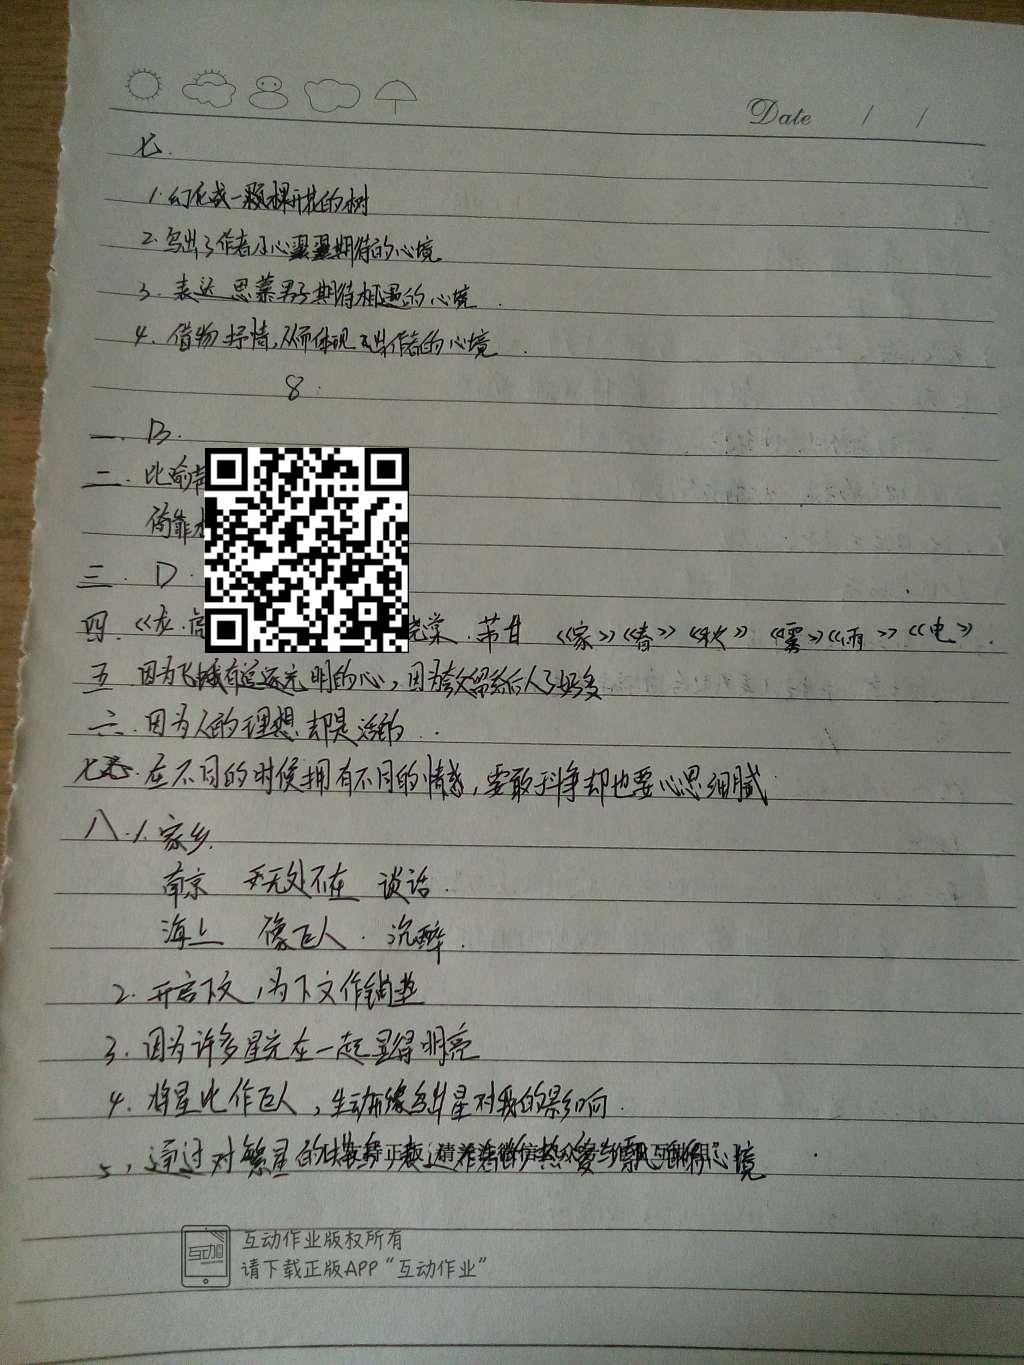 Date / /
七.
1. 幻化成一颗棵开花的树
2. 写出了作者小心翼翼期待的心境
3. 表达 思慕男子期待相遇的心境.
4. 借物抒情,从而体现出作者的心境.
8.
一. B.
二. 比喻
倚靠
三. D.
四. 《龙· 茅甘 《家》《春》《秋》 《雾》《雨》《电》.
五 因为飞蛾有追逐光明的心,因为 留给后人
六. 因为人的理想却是活的..
七 在不同的时候拥有不同的情感,要敢于斗争却也要心思细腻.
八.1.家乡.
南京 无处不在 谈话.
海上 像巨人. 沉醉.
2. 开启下文,为下文作铺垫
3. 因为许多星光在一起显得明亮
4. 将星比作巨人,生动形像写出星对我的影响.
5, 通过对繁星的 心境
互动作业版权所有
请下载正版APP“互动作业”